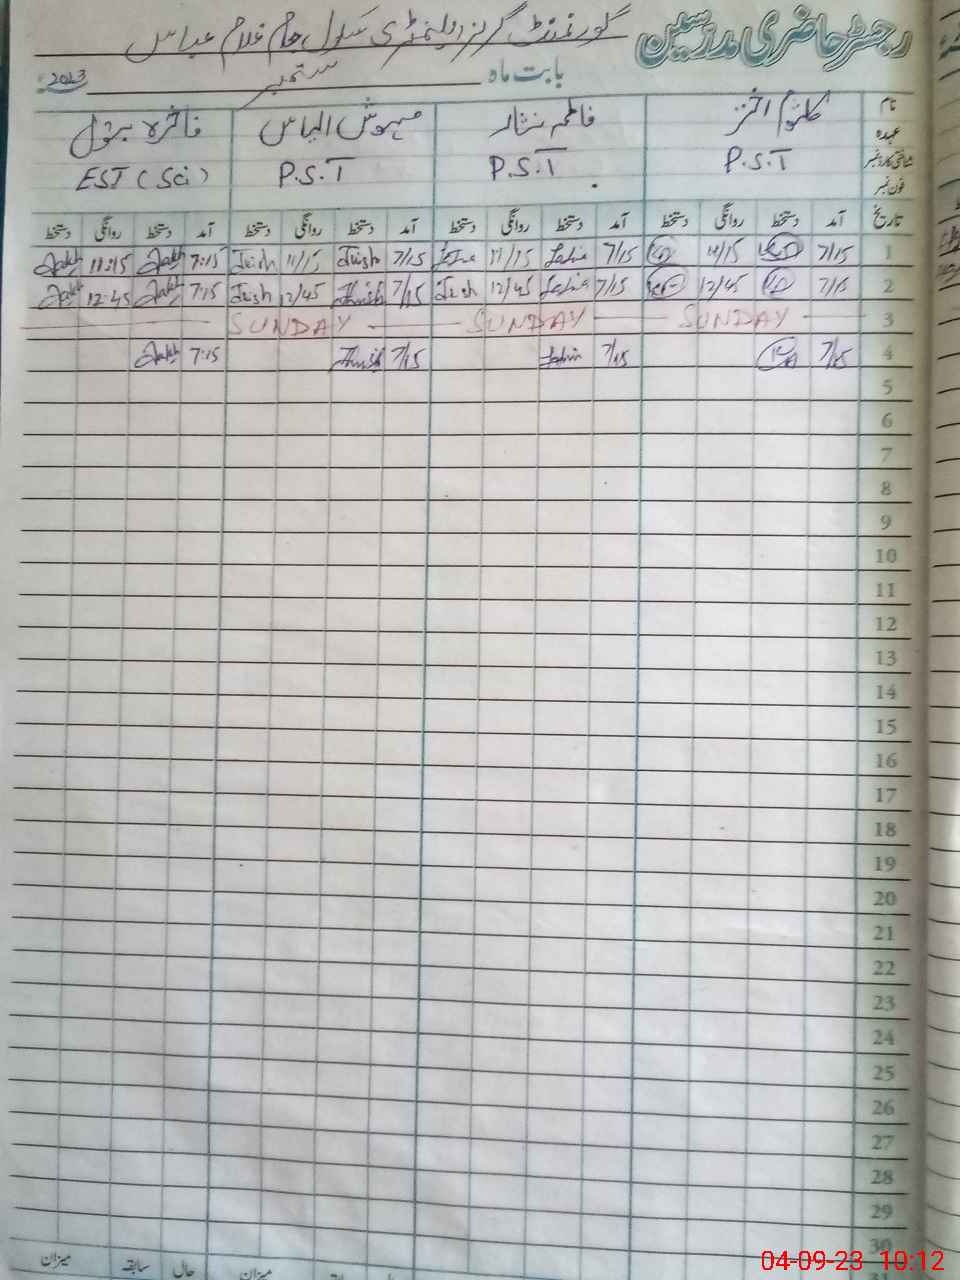 رجسٹر حاضری مدرسین گورنمنٹ گرلز ایلیمنٹری سکول جام غلام عباس
بابت ماہ ستمبر 2023ء
نام کلثوم اختر فاطمہ نثار مہوش الیاس فاخرہ بتول
عہدہ
شناختی کارڈ نمبر P.S.T P.S.T P.S.T EST (Sci)
فون نمبر
تاریخ آمد دستخط روانگی دستخط آمد دستخط روانگی دستخط آمد دستخط روانگی دستخط آمد دستخط روانگی دستخط
1 7/15 11/15 7/15 11/15 7/15 11/15 7:15 11:15
2 7/15 12/45 7/15 12/45 7/15 12/45 7:15 12:45
3 SUNDAY SUNDAY SUNDAY
4 7/15 7/15 7/15 7:15
5
6
7
8
9
10
11
12
13
14
15
16
17
18
19
20
21
22
23
24
25
26
27
28
29
30
میزان حال سابقہ میزان
04-09-23 10:12